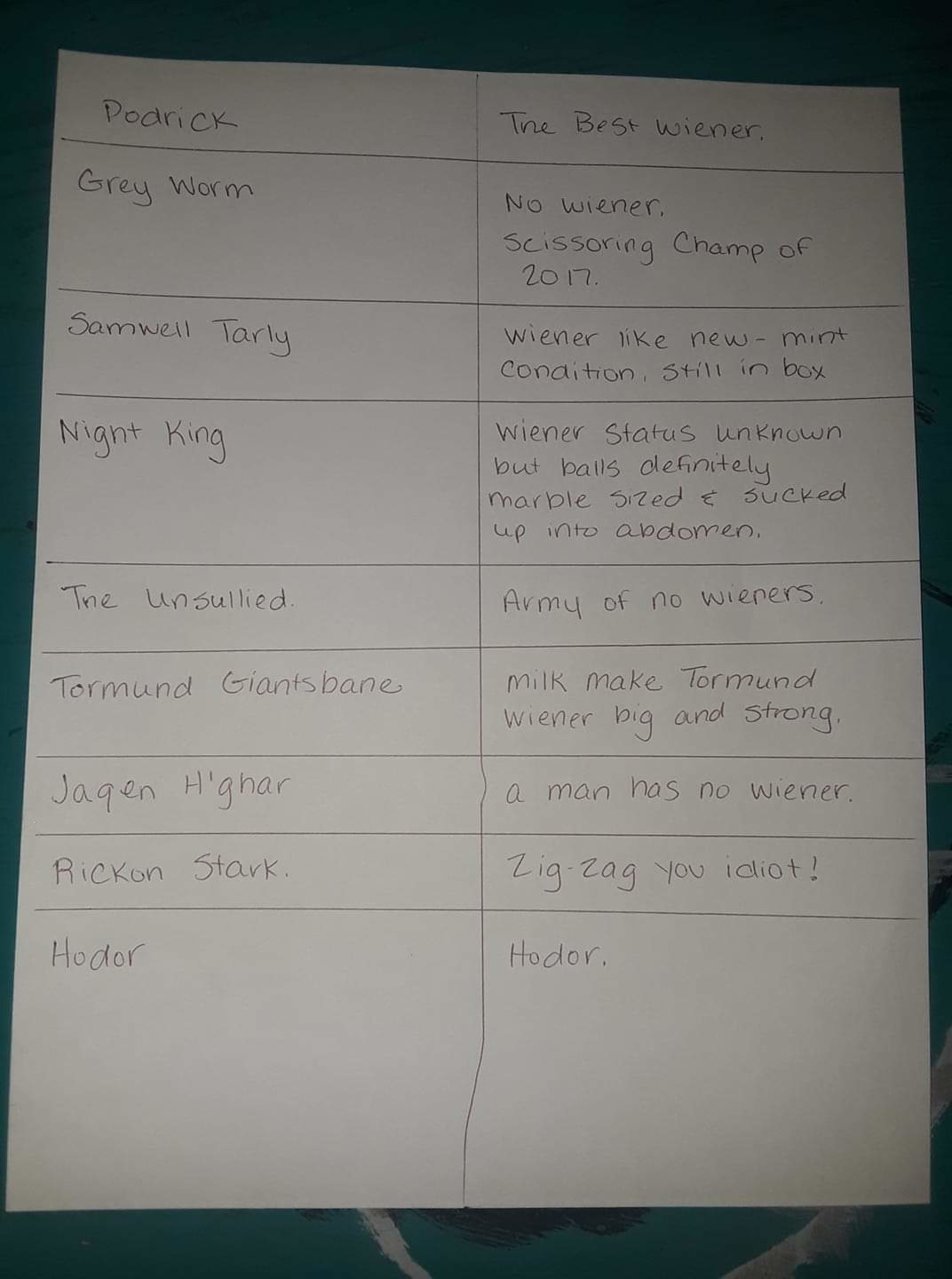 Podrick
The Best Wiener.
Grey Worm
No wiener.
Scissoring Champ of
2017.
Samwell Tarly
Wiener like new - mint
condition, still in box
Night King
Wiener Status unknown
but balls definitely
marble sized & sucked
up into abdomen.
The Unsullied.
Army of no wieners.
Tormund Giantsbane
Milk make Tormund
wiener big and strong.
Jaqen H'ghar
a man has no wiener.
Rickon Stark.
Zig-zag you idiot!
Hodor
Hodor.